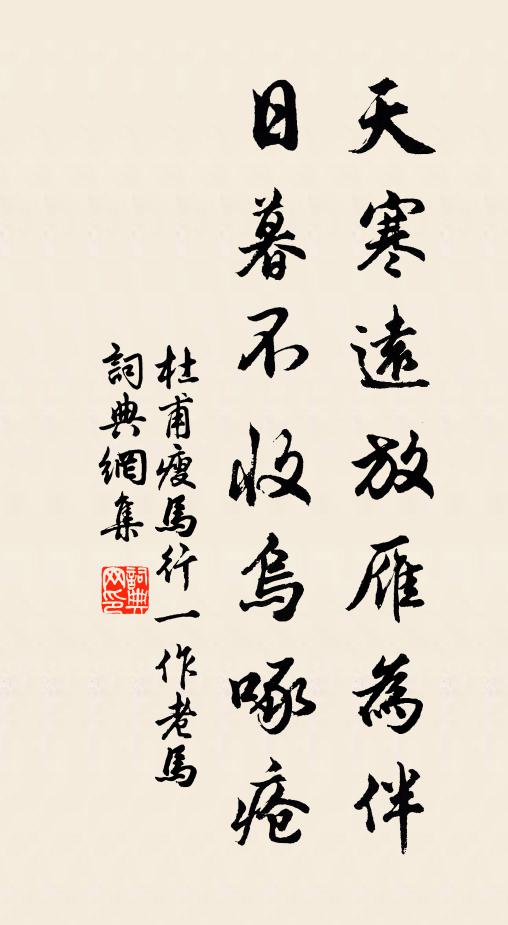 天寒遠放雁為伴
日暮不收烏啄瘡
杜甫瘦馬行一作老馬
詞典網集
詞典網印